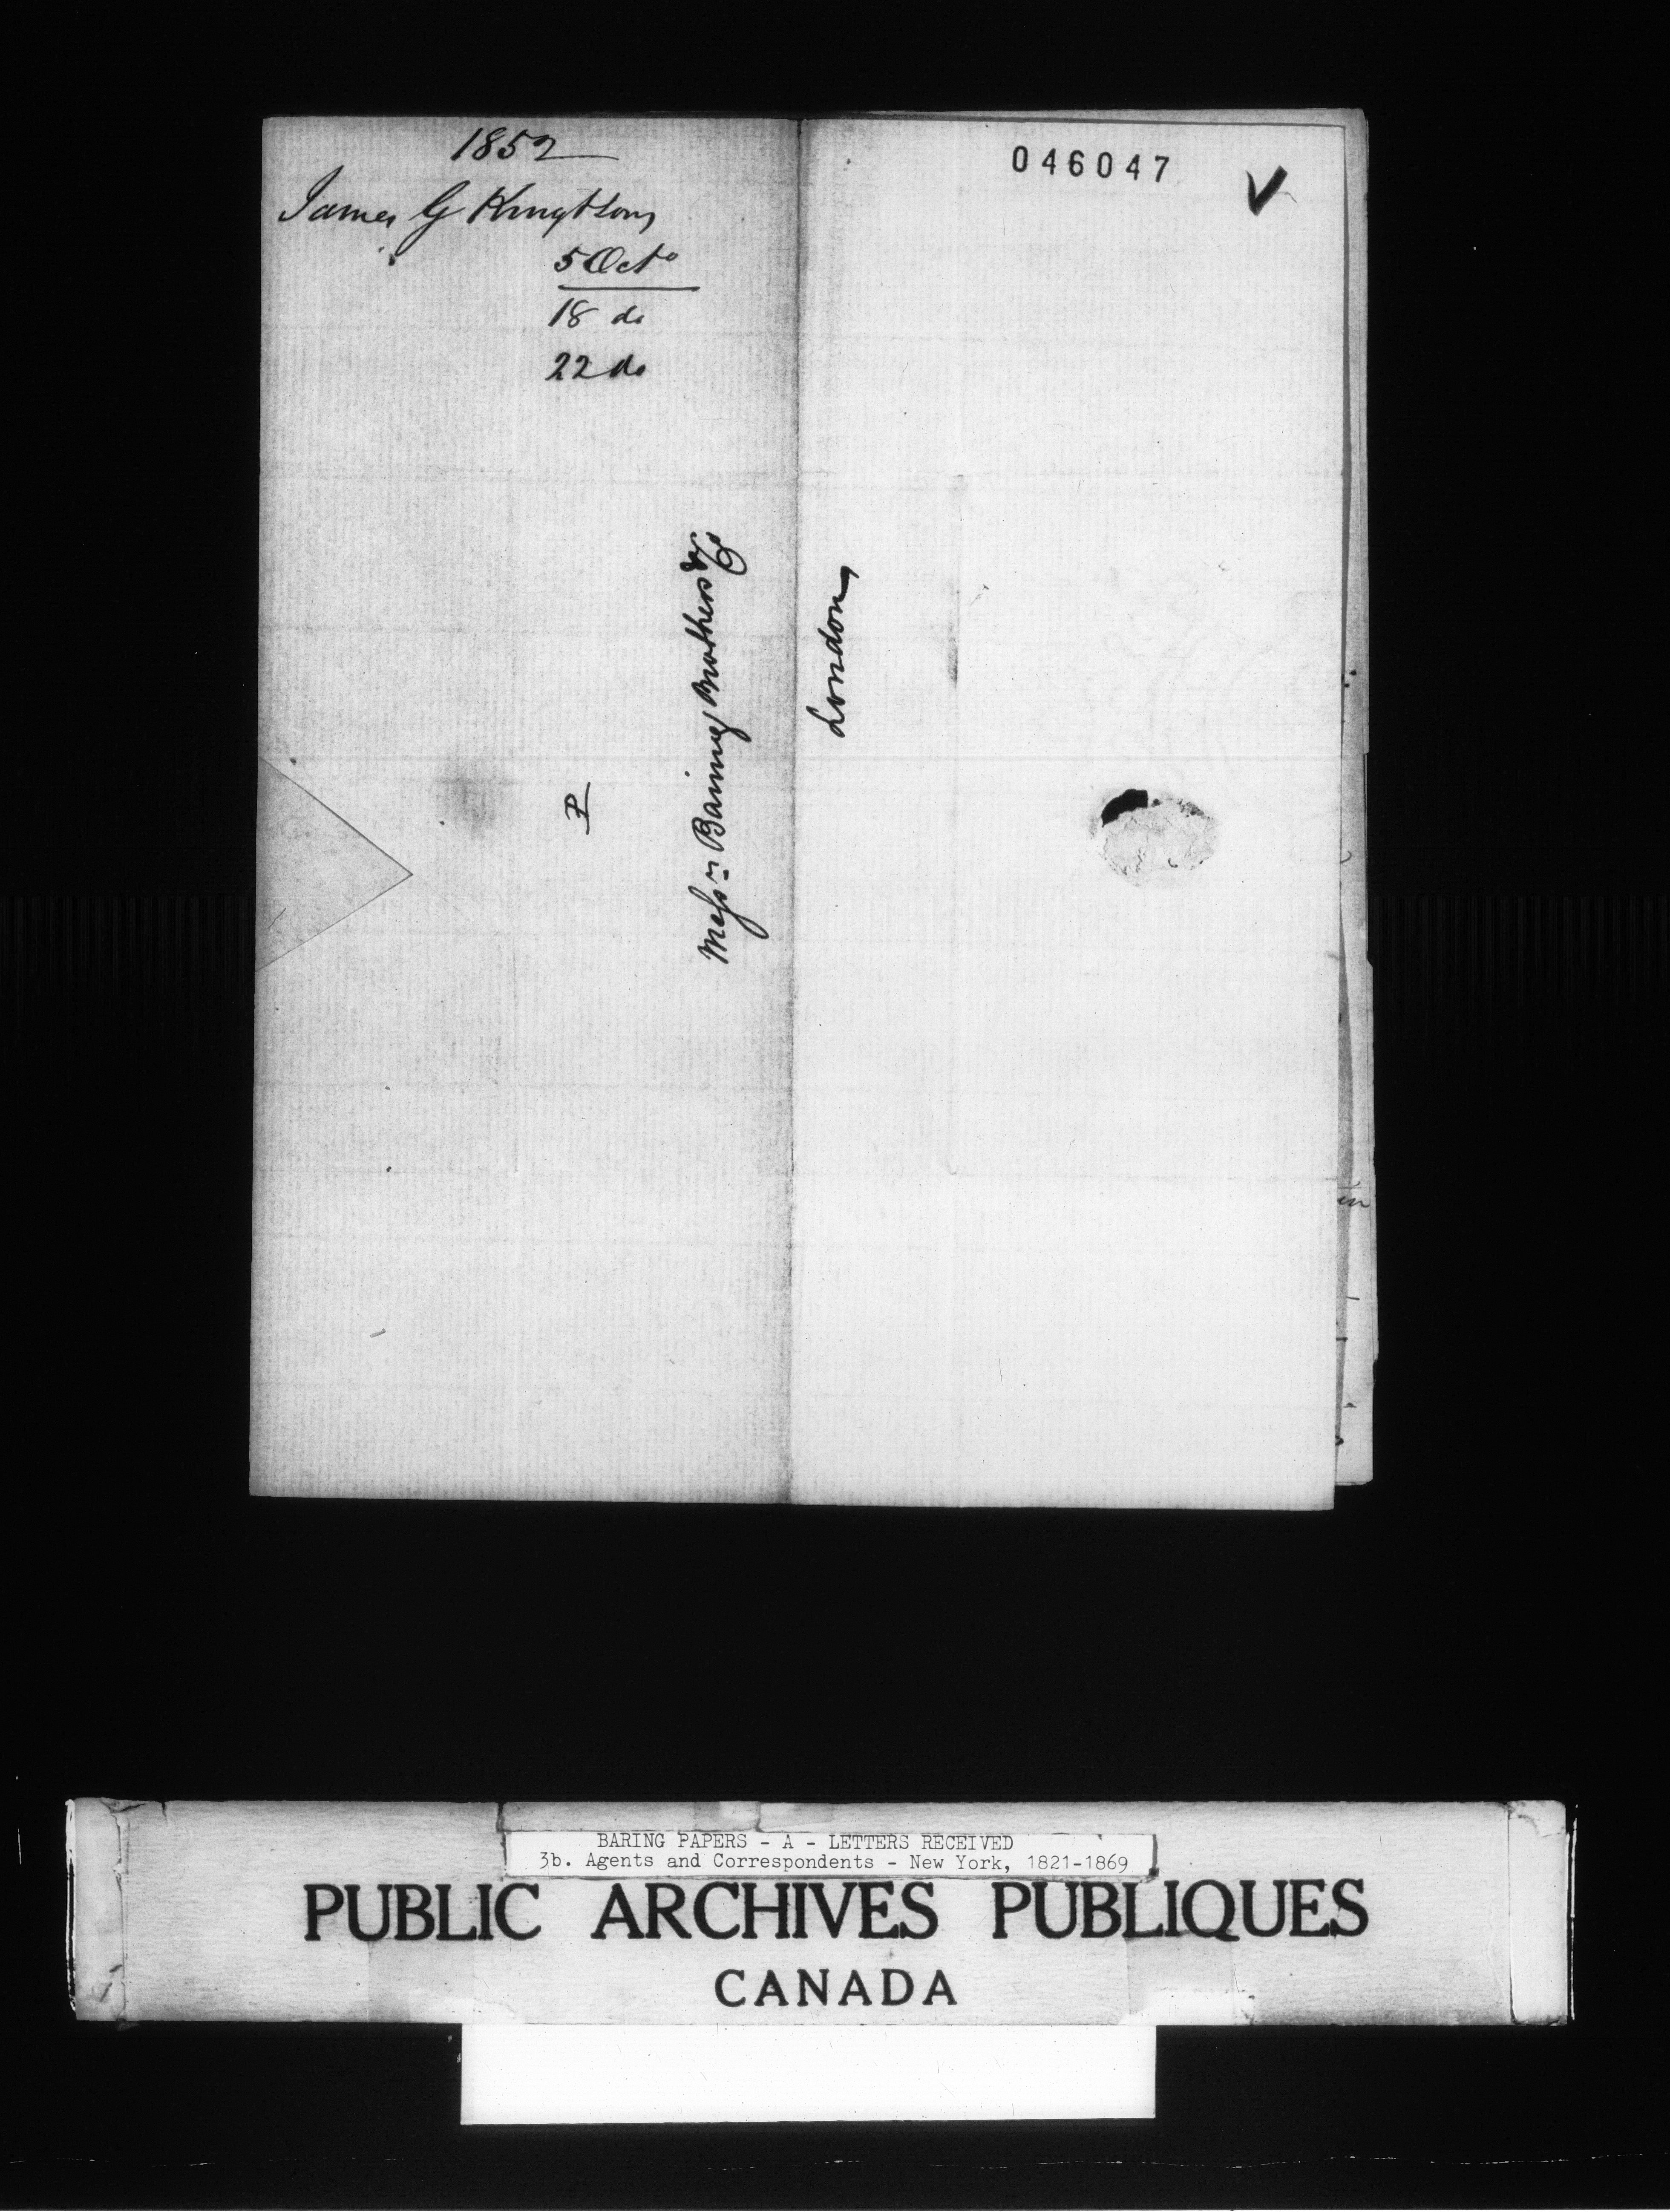 1852
James G King & Sons
5 Octo
18 do
22 do
046047
P
Messrs Baring Brothers & Co
London
BARING PAPERS - A - LETTERS RECEIVED
3b. Agents and Correspondents - New York, 1821-1869
PUBLIC ARCHIVES PUBLIQUES
CANADA